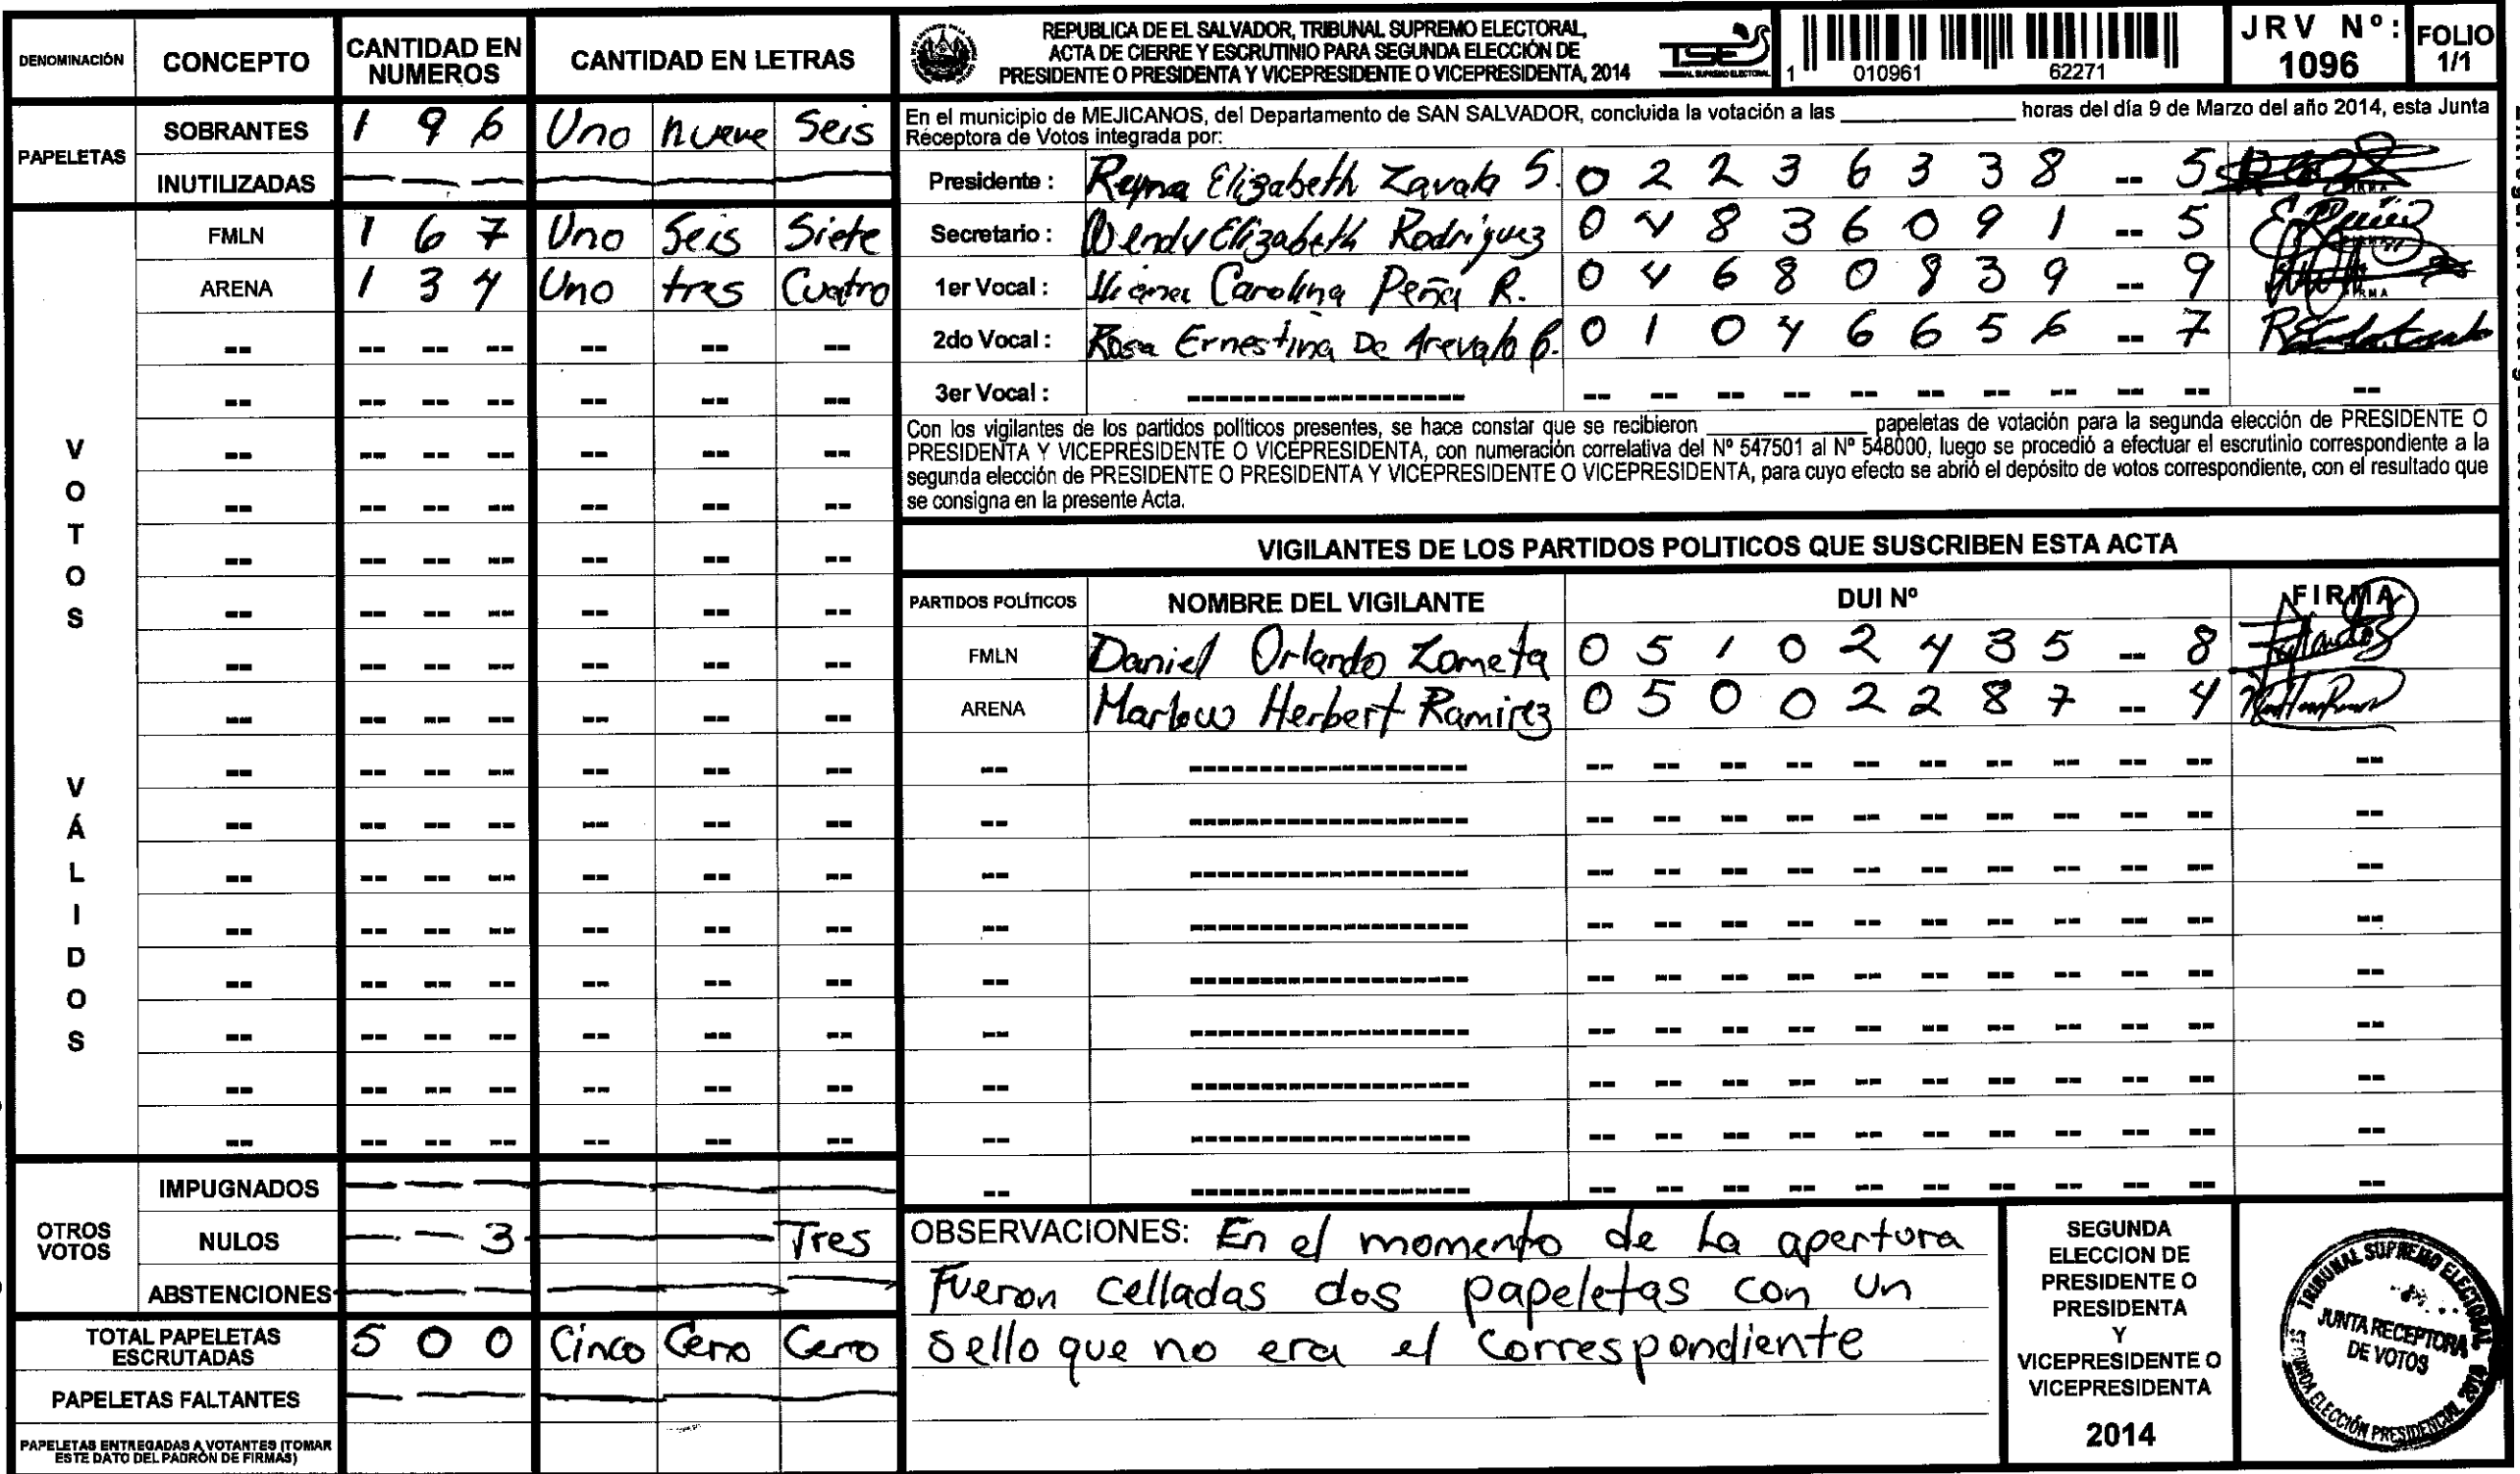 DENOMINACIÓN CONCEPTO CANTIDAD EN NUMEROS CANTIDAD EN LETRAS
PAPELETAS
SOBRANTES 1 9 6 Uno nueve Seis
INUTILIZADAS
VOTOS VÁLIDOS
FMLN 1 6 7 Uno Seis Siete
ARENA 1 3 4 Uno tres Cuatro
OTROS VOTOS
IMPUGNADOS
NULOS 3 Tres
ABSTENCIONES
TOTAL PAPELETAS ESCRUTADAS 5 0 0 Cinco Cero Cero
PAPELETAS FALTANTES
PAPELETAS ENTREGADAS A VOTANTES (TOMAR
ESTE DATO DEL PADRÓN DE FIRMAS)
REPUBLICA DE EL SALVADOR, TRIBUNAL SUPREMO ELECTORAL,
ACTA DE CIERRE Y ESCRUTINIO PARA SEGUNDA ELECCIÓN DE
PRESIDENTE O PRESIDENTA Y VICEPRESIDENTE O VICEPRESIDENTA, 2014
TSE
TRIBUNAL SUPREMO ELECTORAL
1 010961 62271
JRV Nº: 1096
FOLIO 1/1
En el municipio de MEJICANOS, del Departamento de SAN SALVADOR, concluida la votación a las ____________ horas del día 9 de Marzo del año 2014, esta Junta
Receptora de Votos integrada por:
Presidente : Reyna Elizabeth Zavala S. 0 2 2 3 6 3 3 8 -- 5
Secretario : Wendy Elizabeth Rodriguez 0 4 8 3 6 0 9 1 -- 5
1er Vocal : Carolina Peña R. 0 4 6 8 0 8 3 9 -- 9
2do Vocal : Rosa Ernestina De Arevalo P. 0 1 0 4 6 6 5 6 -- 7
3er Vocal :
Con los vigilantes de los partidos políticos presentes, se hace constar que se recibieron ____________ papeletas de votación para la segunda elección de PRESIDENTE O
PRESIDENTA Y VICEPRESIDENTE O VICEPRESIDENTA, con numeración correlativa del Nº 547501 al Nº 548000, luego se procedió a efectuar el escrutinio correspondiente a la
segunda elección de PRESIDENTE O PRESIDENTA Y VICEPRESIDENTE O VICEPRESIDENTA, para cuyo efecto se abrió el depósito de votos correspondiente, con el resultado que
se consigna en la presente Acta.
VIGILANTES DE LOS PARTIDOS POLITICOS QUE SUSCRIBEN ESTA ACTA
PARTIDOS POLÍTICOS NOMBRE DEL VIGILANTE DUI Nº FIRMA
FMLN Daniel Orlando Zometa 0 5 1 0 2 4 3 5 -- 8
ARENA Marlow Herbert Ramirez 0 5 0 0 2 2 8 7 -- 4
OBSERVACIONES: En el momento de La apertura
Fueron celladas dos papeletas con un
sello que no era el correspondiente
SEGUNDA
ELECCION DE
PRESIDENTE O
PRESIDENTA
Y
VICEPRESIDENTE O
VICEPRESIDENTA
2014
TRIBUNAL SUPREMO ELECTORAL
JUNTA RECEPTORA
DE VOTOS
SEGUNDA ELECCIÓN PRESIDENCIAL 2014